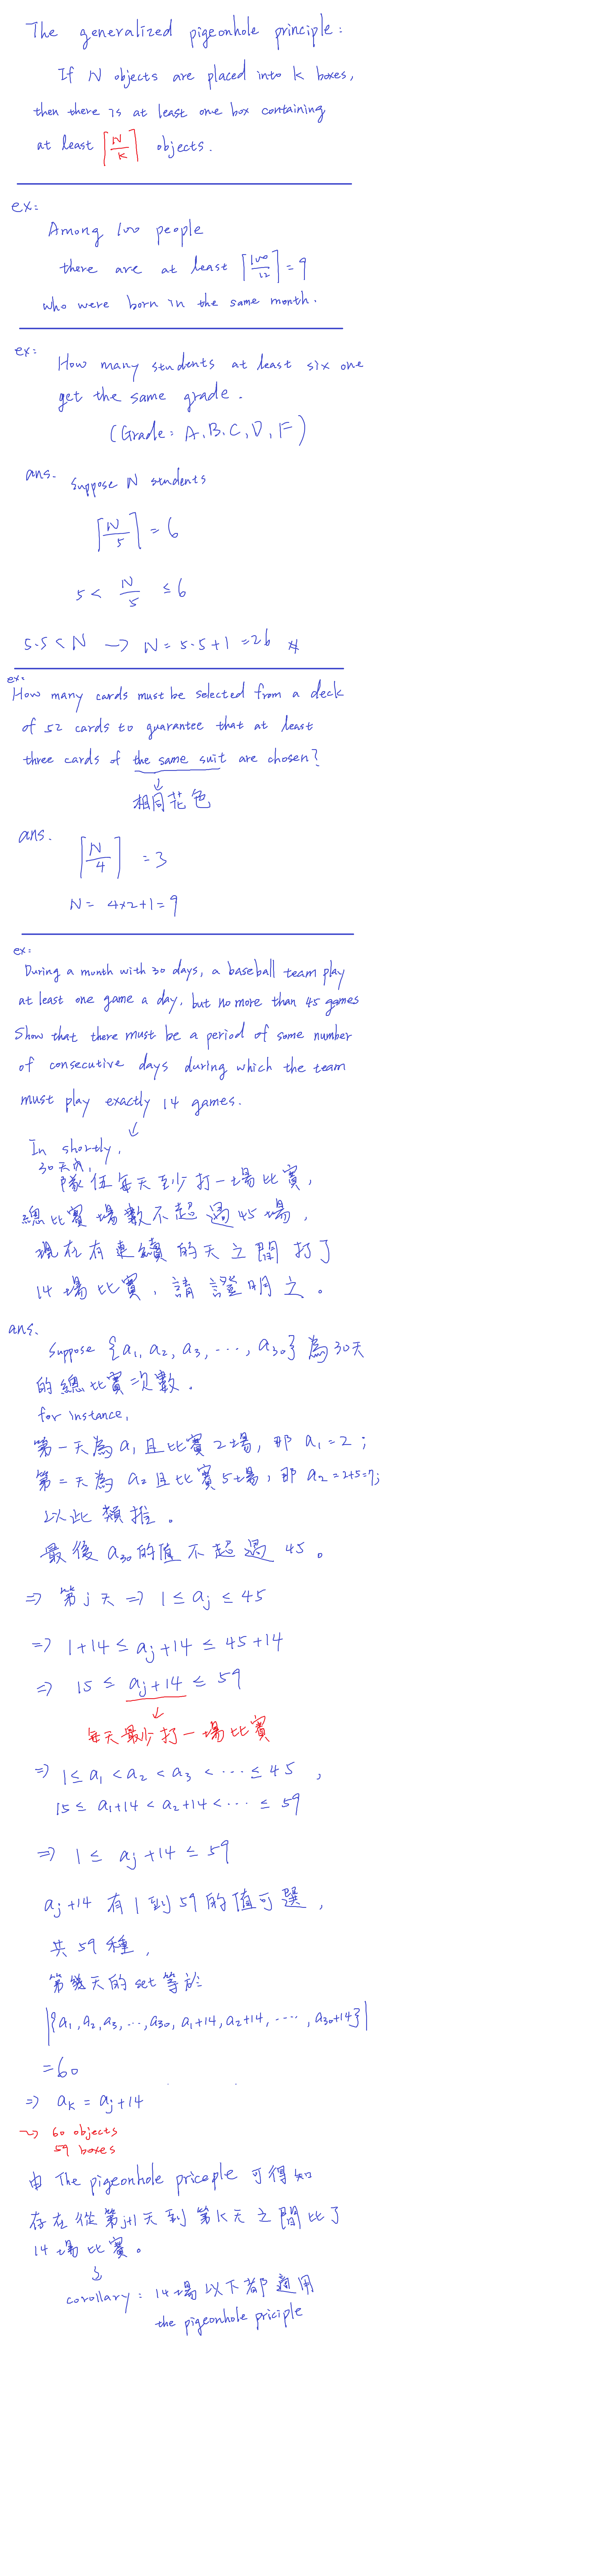 The generalized pigeonhole principle:
If N objects are placed into k boxes,
then there is at least one box containing
at least ⌈N/k⌉ objects.
ex:
Among 100 people
there are at least ⌈100/12⌉ = 9
who were born in the same month.
ex:
How many students at least six one
get the same grade.
(Grade: A, B, C, D, F)
ans.
Suppose N students
⌈N/5⌉ = 6
5 < N/5 ≤ 6
5·5 < N → N = 5·5+1 = 26 #
ex.
How many cards must be selected from a deck
of 52 cards to guarantee that at least
three cards of the same suit are chosen?
↓
相同花色
ans.
⌈N/4⌉ = 3
N = 4×2+1 = 9
ex:
During a month with 30 days, a baseball team play
at least one game a day, but no more than 45 games
Show that there must be a period of some number
of consecutive days during which the team
must play exactly 14 games.
↓
In shortly,
30天內,
隊伍每天至少打一場比賽,
總比賽場數不超過45場,
現在有連續的天之間打了
14場比賽, 請證明之。
ans.
Suppose {a₁, a₂, a₃, ..., a₃₀} 為30天
的總比賽次數.
for instance,
第一天為a₁且比賽2場, 那 a₁=2;
第二天為a₂且比賽5場, 那 a₂=2+5=7;
以此類推。
最後a₃₀的值不超過45。
⇒ 第j天 ⇒ 1 ≤ aⱼ ≤ 45
⇒ 1+14 ≤ aⱼ+14 ≤ 45+14
⇒ 15 ≤ aⱼ+14 ≤ 59
↓
每天最少打一場比賽
⇒ 1 ≤ a₁ < a₂ < a₃ < ... ≤ 45,
15 ≤ a₁+14 < a₂+14 < ... ≤ 59
⇒ 1 ≤ aⱼ+14 ≤ 59
aⱼ+14 有1到59的值可選,
共59種,
第幾天的set等於
|{a₁, a₂, a₃, ..., a₃₀, a₁+14, a₂+14, ...., a₃₀+14}|
= 60
⇒ aₖ = aⱼ+14
→ 60 objects
59 boxes
由 The pigeonhole priceple 可得知
存在從第j+1天到第k天之間比了
14場比賽。
↓
corollary: 14場以下都適用
the pigeonhole priciple